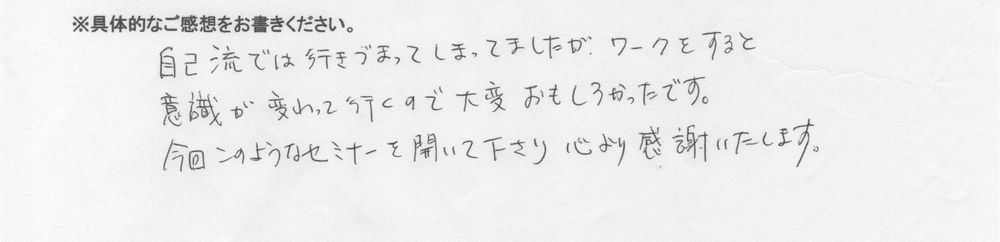 ※具体的なご感想をお書きください。
自己流では行きづまってしまってましたが、ワークをすると
意識が変わって行くので大変おもしろかったです。
今回このようなセミナーを開いて下さり心より感謝いたします。